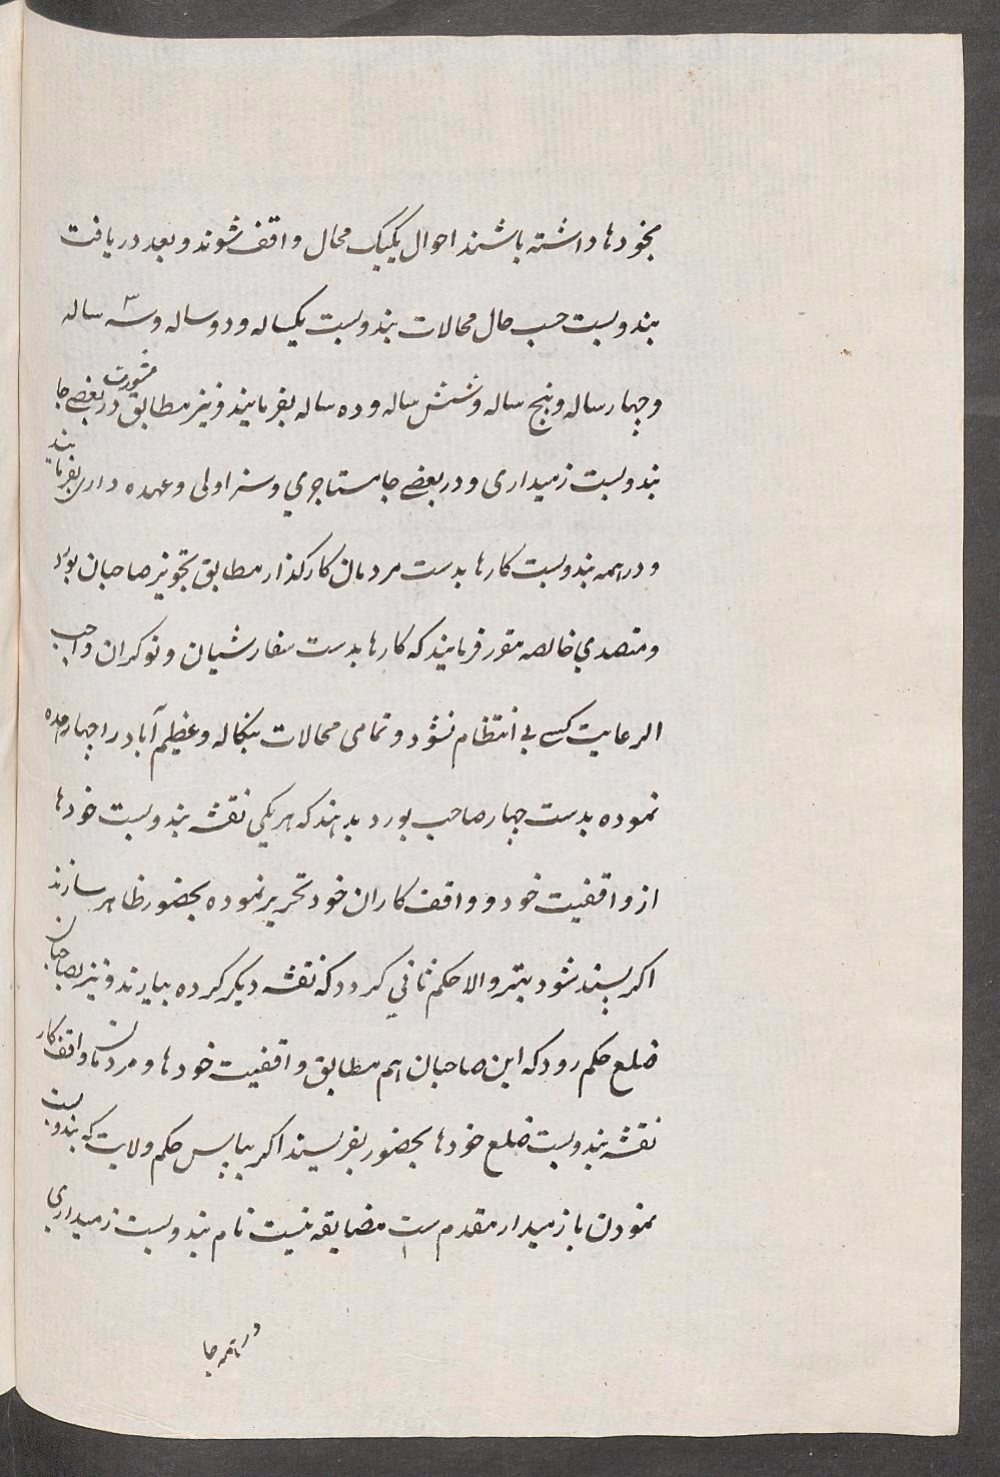 بخودها داشته باشند احوال یکیک محال واقف شوند و بعد دریافت
بندوبست حسب حال محالات بندوبست یکساله و دو ساله و سه ساله
و چهار ساله و پنج ساله و شش ساله و ده ساله بفرمایند و نیز مطابق مشورت در بعضے جا
بندوبست زمیداری و در بعضے جا مستاجری و سزاولی و عهده داری بفرمایند
و در همه بندوبست کارها بدست مردمان کارکذار مطابق تجویز صاحبان بورد
و متصدی خالصه مقرر فرمایند که کارها بدست سفارشیان و نوکران واجب
الرعایت کسے بی انتظام نشود و تمامی محالات بنکاله و عظیم آباد را چهار حده
نموده بدست چهار صاحب بورد بدهند که هر یکی نقشه بندوبست خودها
از واقفیت خود و واقف کاران خود تحریر نموده بحضور ظاهر سازند
اکر پسند شود بهتر والا حکم ثانی کردد که نقشه دیکر کرده بیارند و نیز بصاحبان
ضلع حکم رود که این صاحبان هم مطابق واقفیت خودها و مردمان واقف کار
نقشه بندوبست ضلع خودها بحضور بفرسیند اکر بپاس حکم ولایت که بندوبست
نمودن با زمیدار مقدم ست مضایقه نیست نام بندوبست زمیداری
در همه جا